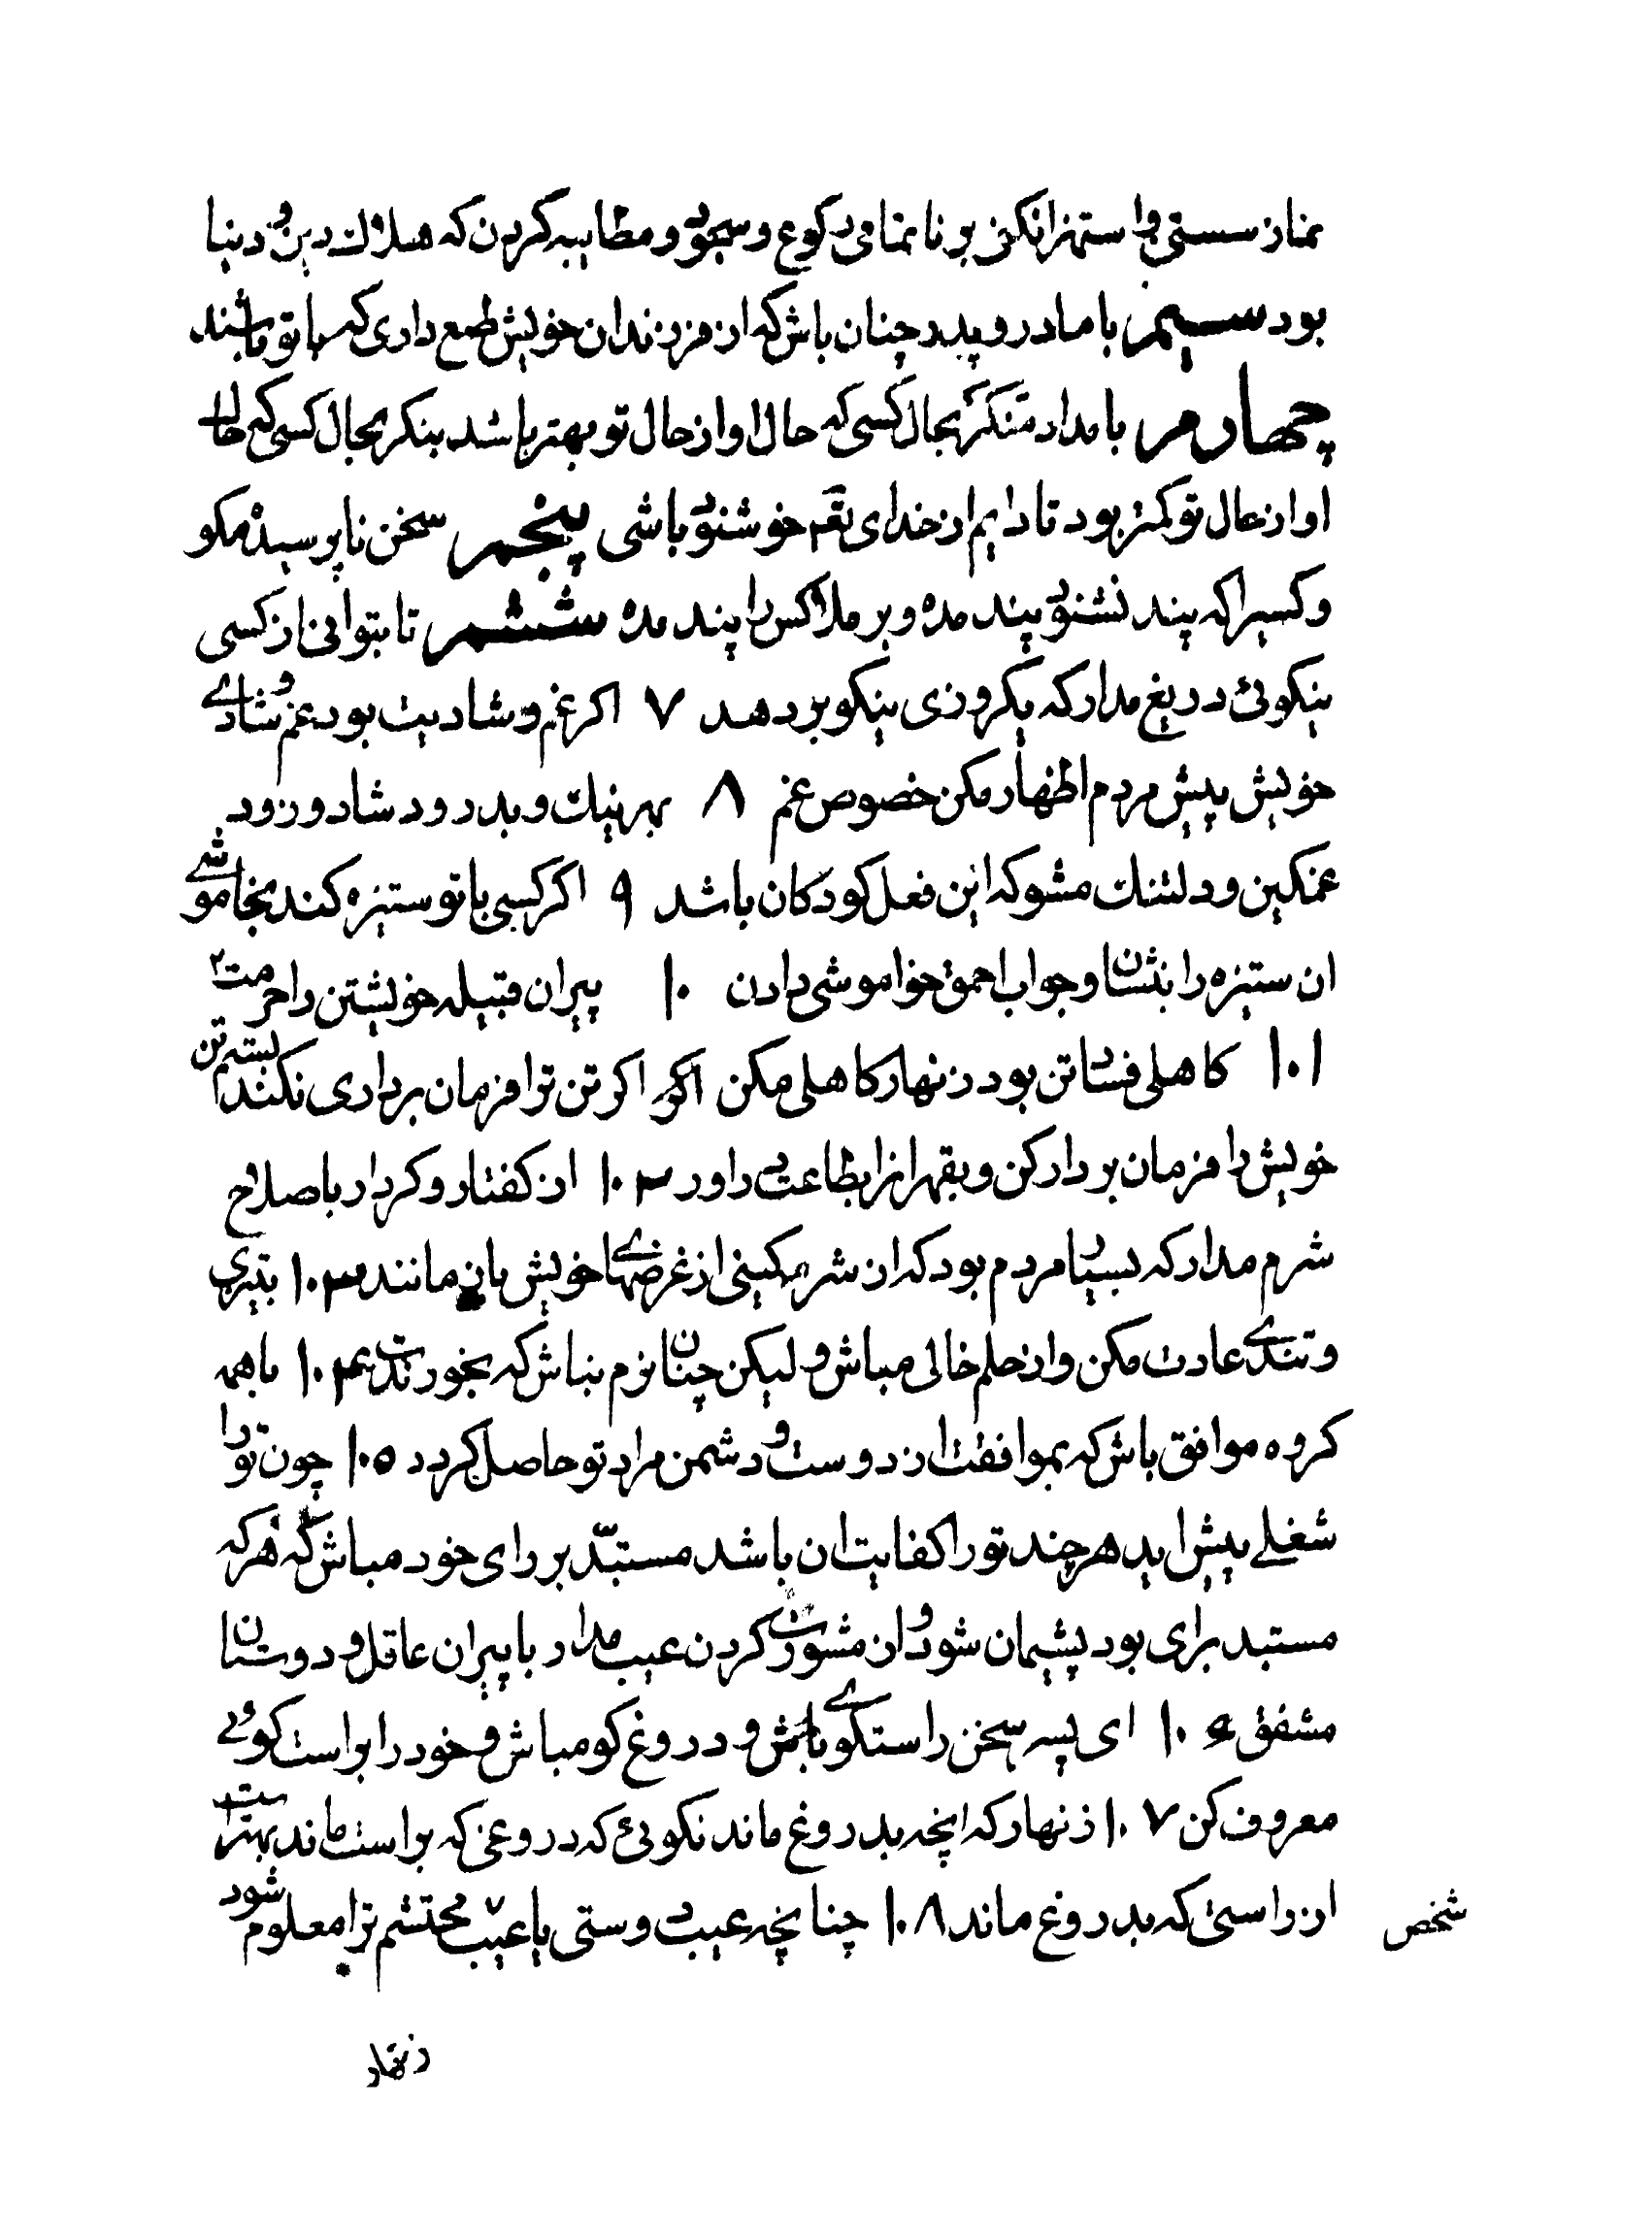 نماز سستی و استهزا نکنی بر ناتمامی رکوع و سجود و مطایبه کردن که هلاک دین و دنیا
بود سیم با مادر و پدر چنان باش که از فرزندان خویش طمع داری که با تو باشند
چهارم بامداد منکر بحال کسی که حال او از حال تو بهتر باشد بنکر بحال کسی که حال
او از حال تو کمتر بود تا دایم از خدای تعه خوشنود باشی پنجم سخن ناپرسیده مکو
و کسیرا که پند نشنود پند مده و بر ملا کس را پند مده ششم تا بتوانی از کسی
نیکوئی دریغ مدار که یکروزی نیکو بر دهد ۷ اکر غم و شادیت بود غم و شادی
خویش پیش مردم اظهار مکن خصوص غم ۸ بهر نیک و بد زود شاد و زود
غمکین و دلتنک مشو که این فعل کودکان باشد ۹ اکر کسی با تو ستیزه کند بخاموشی
ان ستیزه را بنشان و جواب احمق خواموشی دادن ۱۰ پیران قبیله خویشتن را حرمت
۱۰۱ کاهلی فساد تن بود زنهار کاهلی مکن اکر اکر تن ترا فرمان برداری نکند بستم تن
خویش را فرمان بردار کن و بقهر انرا بطاعت در اور ۱۰۲ از کفتار و کردار با صلاح
شرم مدار که بسیار مردم بود که از شرمکینی از غرضهای خویش بازمانند ۱۰۳ بتیزی
و تندی عادت مکن و از حلم خالی مباش و لیکن چنان نرم نباش که بخورندت ۱۰۴ با همه
کروه موافق باش که بموافقت از دوست و دشمن مراد تو حاصل کردد ۱۰۵ چون تو را
شغلے پیش اید هر چند تو را کفایت ان باشد مستبدّ برای خود مباش که هر که
مستبد برای بود پشیمان شود و از مشورت کردن عیب مدار با پیران عاقل و دوستان
مشفق ۱۰۶ ای پسر سخن راستکوی باش و دروغ کو مباش و خود را براست کوئی
معروف کن ۱۰۷ زنهار که انچه بدروغ ماند نکوئی که دروغی که براست ماند بهتر است
از راستی که بدروغ ماند ۱۰۸ چنانچه عیب دوستی یا عیب محتشم ترا معلوم شود
شخص
زنهار